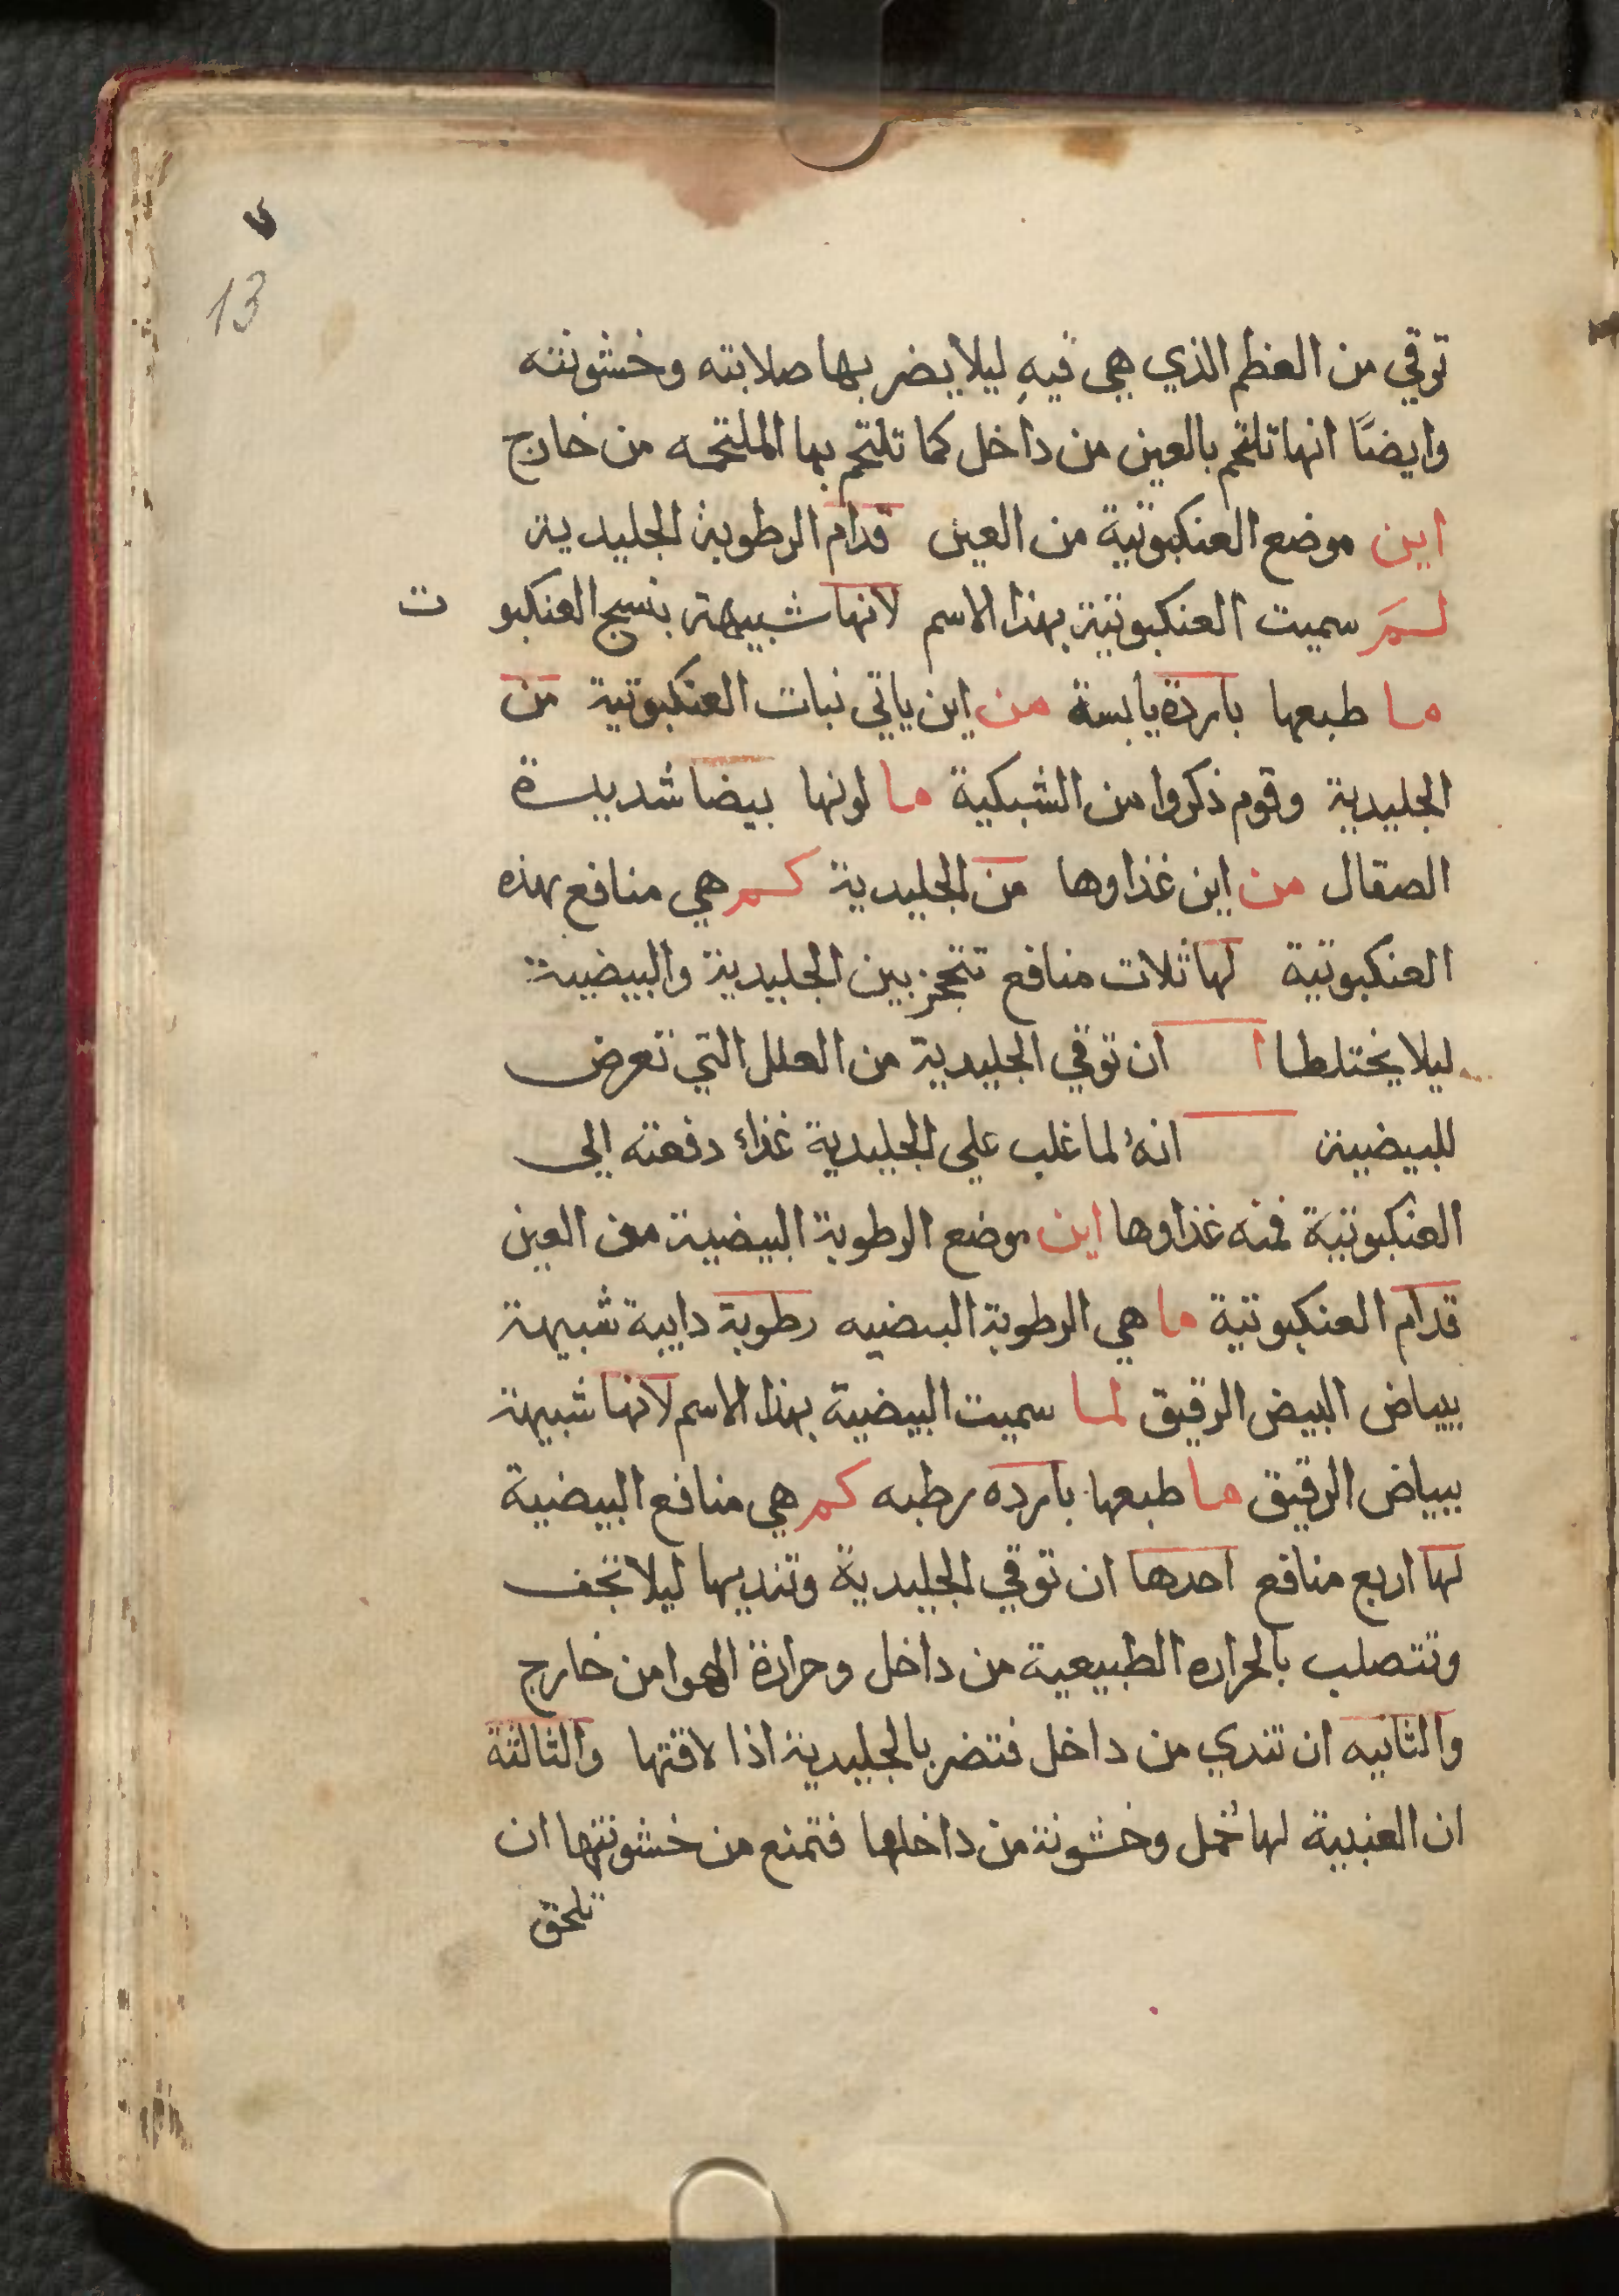 ٧
13
توقي من العظم الذي هي فيهِ ليلا يضر بها صلابته وخشونته
وايضًا انها تلتحم بالعين من داخل كما تلتحم بها الملتحمه من خارج
اين موضع العنكبوتية من العين قدام الرطوبة الجليدية
لمَ سميت العنكبوتية بهذا الاسم لانها شبيهة بنسج العنكبوت
ما طبعها باردة يابسة من اين ياتي نبات العنكبوتية من
الجليدية وقوم ذكروا من الشبكية ما لونها بيضا شديدة
الصقال من اين غذاوها من الجليدية كم هي منافع بهذه
العنكبوتية لها ثلات منافع تتحجز بين الجليدية والبيضية
ليلا يختلطا ا ان توقي الجليدية من العلل التي تعرض
للبيضية انهُ لما غلب علي الجليدية غذاء دفعته الي
العنكبوتية فمنه غذاوها اين موضع الرطوبة البيضية من العين
قدام العنكبوتية ما هي الرطوبة البيضيه رطوبة دايبة شبيهة
ببياض البيض الرقيق لما سميت البيضية بهذا الاسم لانها شبيهة
ببياض الرقيق ما طبعها بارده رطبه كم هي منافع البيضية
لها اربع منافع احدها ان توقي الجليدية وتنديها ليلا تجف
وتتصلب بالحراره الطبيعية من داخل وحرارة الهوا من خارج
والثانيه ان تندي من داخل فتضر بالجليدية اذا لاقتها والثالثة
ان العنبية لها خمل وخشونة من داخلها فتمنع من خشونتها ان
تلحق